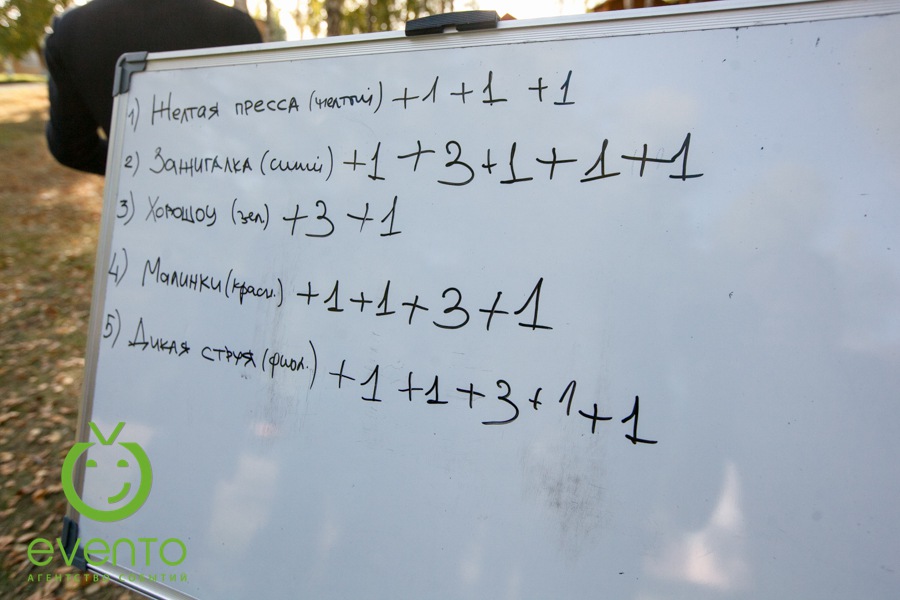 1) Желтая пресса (желтый) +1 +1 +1
2) Зажигалка (синий) +1 +3 +1 +1 +1
3) Хорошоу (зел) +3 +1
4) Малинки (красн.) +1 +1 +3 +1
5) Дикая струя (фиол.) +1 +1 +3 +1 +1
evento
АГЕНТСТВО СОБЫТИЙ